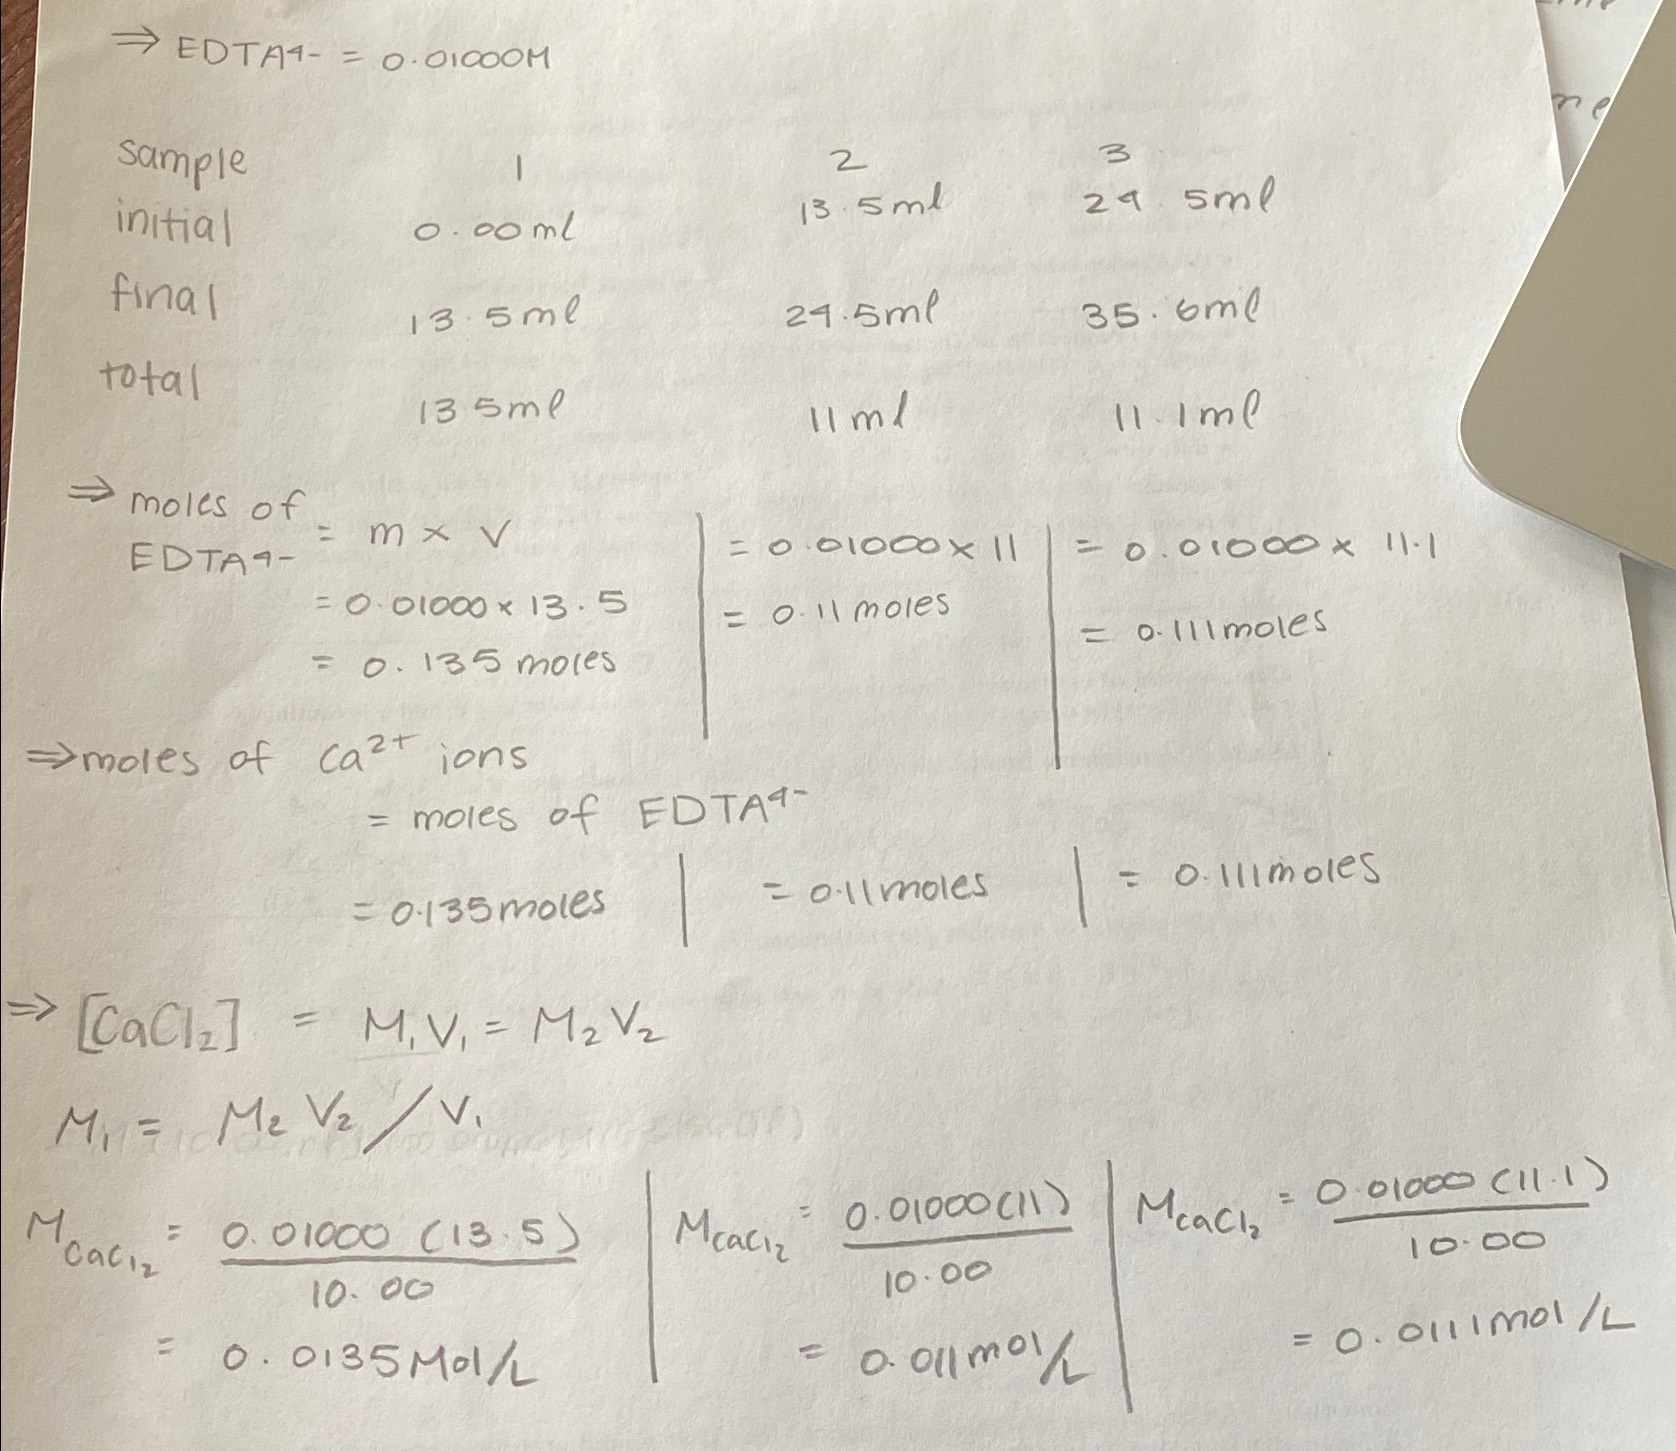 ⇒ EDTA4- = 0.01000M
sample 1 2 3
initial 0.00ml 13.5ml 24.5ml
final 13.5ml 24.5ml 35.6ml
total 13.5ml 11ml 11.1ml
⇒ moles of EDTA4- = m × V
= 0.01000 × 13.5
= 0.135 moles
= 0.01000 × 11
= 0.11 moles
= 0.01000 × 11.1
= 0.111 moles
⇒ moles of Ca²⁺ ions
= moles of EDTA⁴⁻
= 0.135 moles | = 0.11 moles | = 0.111 moles
⇒ [CaCl₂] = M₁V₁ = M₂V₂
M₁ = M₂V₂/V₁
M CaCl₂ = 0.01000 (13.5) / 10.00
= 0.0135 Mol/L
M CaCl₂ = 0.01000 (11) / 10.00
= 0.011 mol/L
M CaCl₂ = 0.01000 (11.1) / 10.00
= 0.0111 mol/L